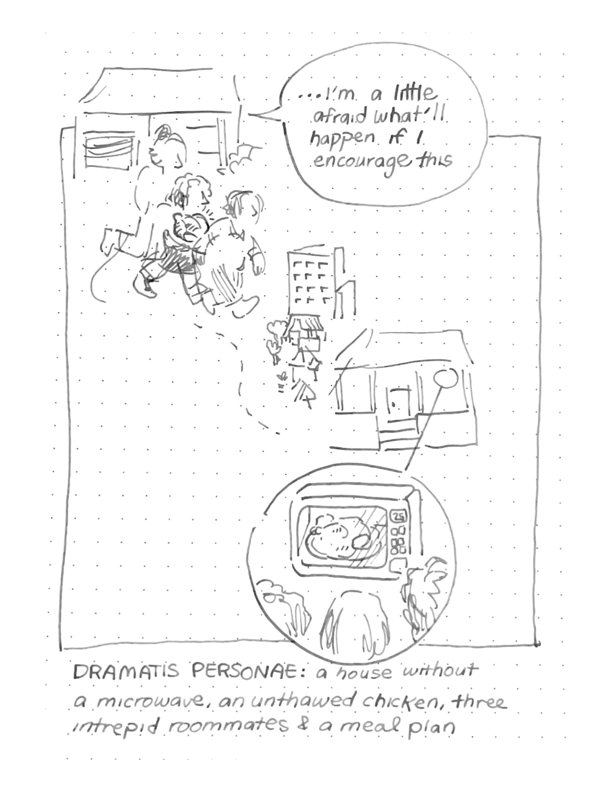 ...I'm a little
afraid what'll
happen if I
encourage this
25
DRAMATIS PERSONAE: a house without
a microwave, an unthawed chicken, three
intrepid roommates & a meal plan